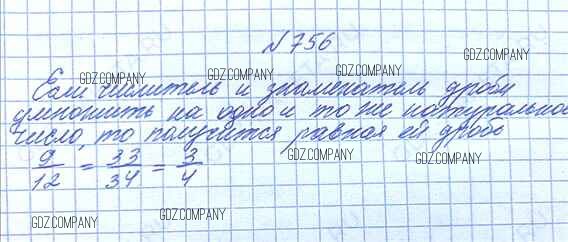 № 756
GDZ.COMPANY
GDZ.COMPANY GDZ.COMPANY
Если числитель и знаменатель дроби
GDZ.COMPANY GDZ.COMPANY
умножить на одно и то же натуральное
число, то получится равная ей дробь
9/12 = 33/34 = 3/4
GDZ.COMPANY GDZ.COMPANY
GDZ.COMPANY GDZ.COMPANY GDZ.COMPANY